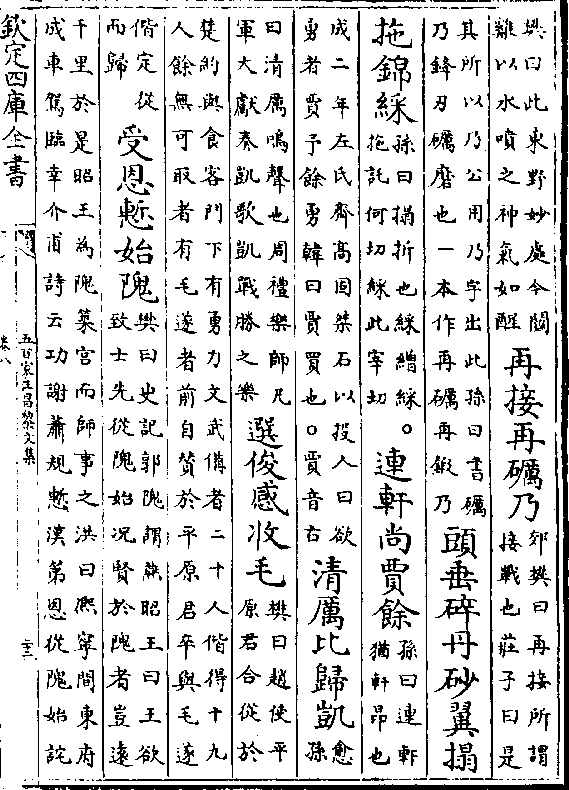 樊曰此東野妙處今閱
雞以水噴之神氣如醒
再接再礪乃
郊樊曰再接所謂
接戰也莊子曰是
其所以乃公用乃字出此孫曰書礪
乃鋒刃礪磨也一本作再礪再鍛乃
頭垂碎丹砂翼搨
拖錦綵
孫曰搨折也綵繒綵
拖託何切綵此宰切
。連軒尚賈餘
孫曰連軒
猶軒昂也
成二年左氏齊高固桀石以投人曰欲
勇者賈予餘勇韓曰賈買也。賈音古
清厲比歸凱
愈
孫
曰清厲鳴聲也周禮樂師凡
軍大獻奏凱歌凱戰勝之樂
選俊感收毛
樊曰趙使平
原君合從於
楚約與食客門下有勇力文武備者二十人偕得十九
人餘無可取者有毛遂者前自贊於平原君卒與毛遂
偕定從
而歸
受恩慙始隗
樊曰史記郭隗謂燕昭王曰王欲
致士先從隗始况賢於隗者豈遠
千里於是昭王為隗築宮而師事之洪曰熈寧間東府
成車駕臨幸介甫詩云功謝蕭規慙漢第恩從隗始詫
欽定四庫全書
卷八
五百家注昌黎文集